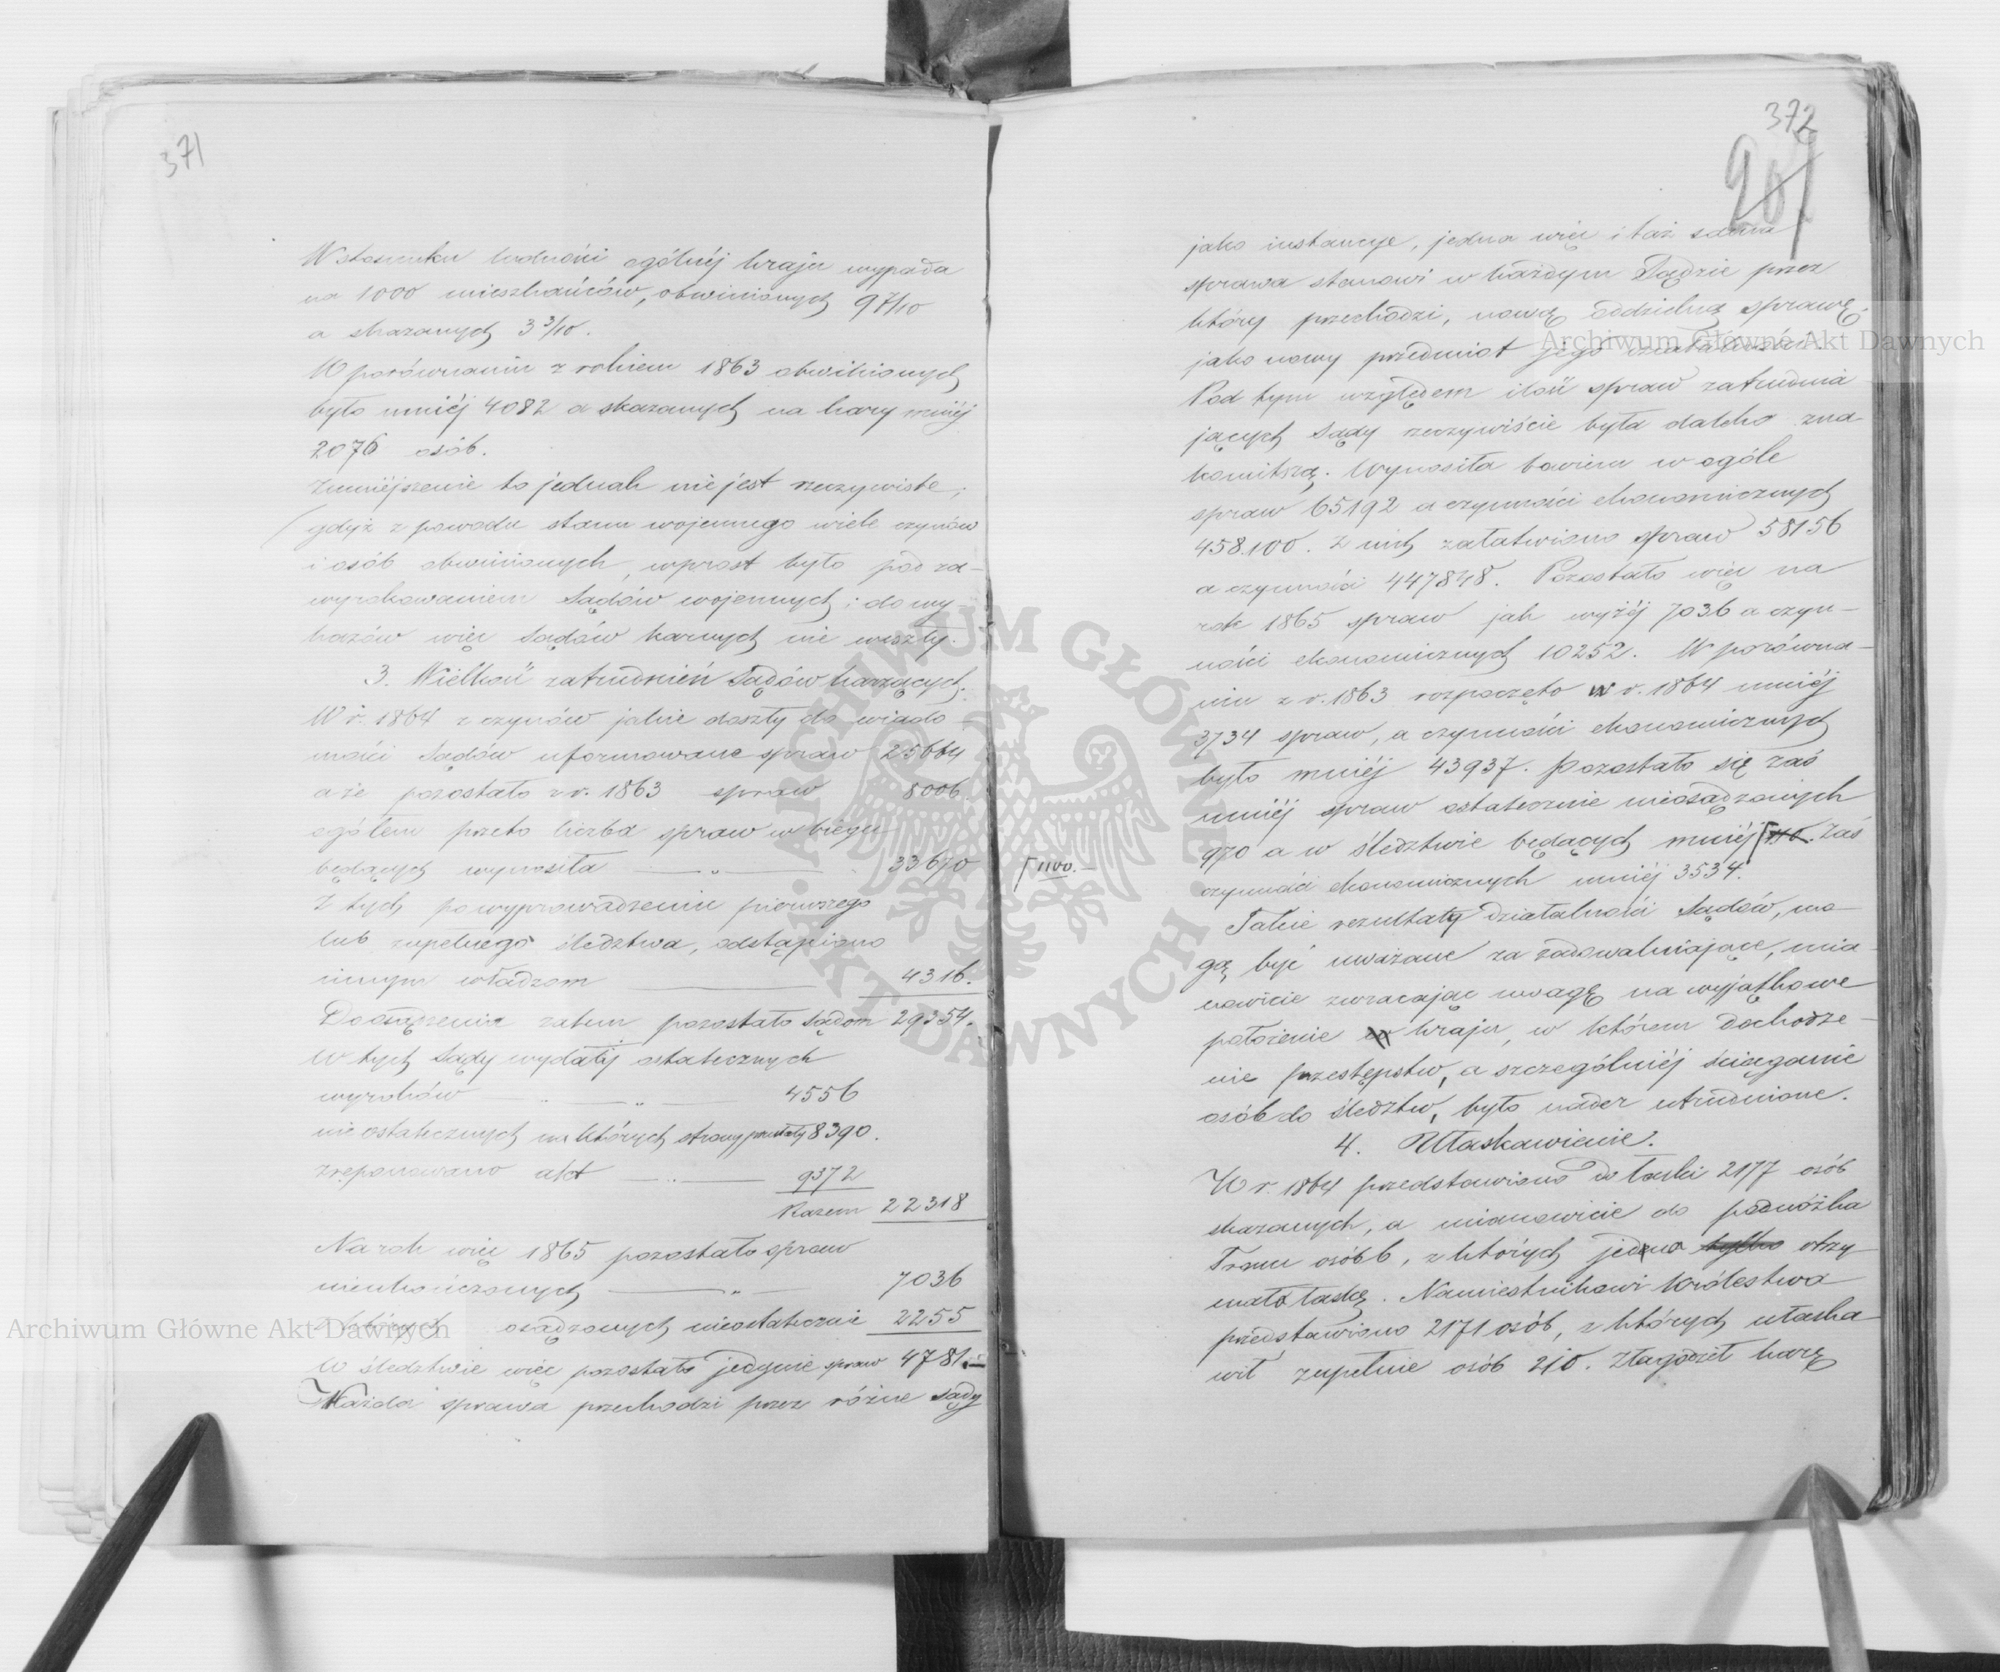 371
W stosunku ludności ogólnéj kraju wypada
na 1000 mieszkańców, obwinionych 9 7/10
a skazanych 3 3/10.
W porównaniu z rokiem 1863 obwinionych
było mniéj 4082 a skazanych na kary mniéj
2076 osób.
Zmniejszenie to jednak nie jest rzeczywiste;
gdyż z powodu stanu wojennego wiele czynów
i osób obwinionych, wprost było pod za-
wyrokowaniem Sądów wojennych; do wy
kazów więc Sądów karnych nie weszły.
3. Wielkość zatrudnień Sądów karzących.
W r. 1864 z czynów jakie doszły do wiado-
mości Sądów uformowano spraw 25664
a że pozostało z r. 1863 spraw 8006.
ogółem przeto liczba spraw w biegu
będących wynosiła — „ — 33670
Z tych po wyprowadzeniu pierwszego
lub zupełnego śledztwa, odstąpiono
innym władzom — 4316.
Do osądzenia zatem pozostało Sądom 29354.
W tych Sądy wydały ostatecznych
wyroków — „ — „ — 4556
nieostatecznych na których strony przestały 8390.
zreponowano akt — „ — 9372
Razem 22318
Na rok więc 1865 pozostało spraw
nieukończonych — „ — 7036
z których osądzonych nieostatecznie 2255
W śledztwie więc pozostało jedynie spraw 4781.—
Każda sprawa przechodzi przez różne Sądy
372
201
jako instancye, jedna więc i taż sama
sprawa stanowi w każdym Sądzie przez
który przechodzi, nową oddzielną sprawę,
jako nowy przedmiot jego działalności.
Pod tym względem ilość spraw zatrudnia
jących Sądy rzeczywiście była daleko zna-
komitszą. Wynosiła bowiem w ogóle
spraw 65192 a czynności ekonomicznych
458.100. Z nich załatwiono spraw 58156
a czynności 447848. Pozostało więc na
rok 1865 spraw jak wyżéj 7036 a czyn-
ności ekonomicznych 10252. W porówna-
niu z r. 1863 rozpoczęto w r. 1864 mniéj
3734 spraw, a czynności ekonomicznych
było mniéj 43937. Pozostało się zaś
mniéj spraw ostatecznie nieosądzonych
970 a w śledztwie będących mniéj Zaś
1100.—
czynności ekonomicznych mniéj 3534.
Takie rezultaty działalności Sądów, mo-
gą być uważane za zadowalniające, mia-
nowicie zwracając uwagę na wyjątkowe
położenie kraju, w którem dochodze-
nie przestępstw, a szczególniéj ściąganie
osób do śledztw, było nader utrudnione.
4. Ułaskawienie.
W r. 1864 przedstawiono do łaski 2177 osób
skazanych, a mianowicie do podnóżka
Tronu osób 6, z których jedna tylko otrzy-
mała łaskę. Namiestnikowi Królestwa
przedstawiono 2171 osób, z których ułaska
wił zupełnie osób 210. Złagodził karę
Archiwum Główne Akt Dawnych
Archiwum Główne Akt Dawnych
ARCHIWUM GŁÓWNE AKT DAWNYCH